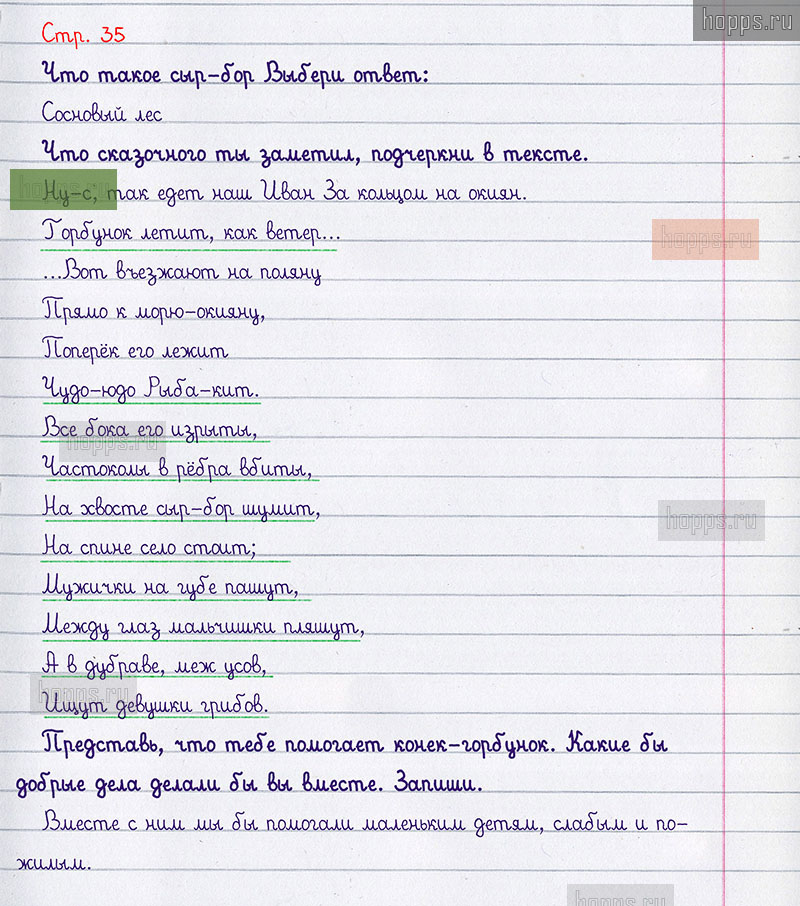 hopps.ru
Стр. 35
Что такое сыр-бор Выбери ответ:
Сосновый лес
Что сказочного ты заметил, подчеркни в тексте.
Ну-с, так едет наш Иван За кольцом на окиян.
hopps.ru
Горбунок летит, как ветер...
hopps.ru
...Вот въезжают на поляну
Прямо к морю-окияну,
Поперёк его лежит
Чудо-юдо Рыба-кит.
Все бока его изрыты,
hopps.ru
Частоколы в рёбра вбиты,
На хвосте сыр-бор шумит,
hopps.ru
На спине село стоит;
Мужички на губе пашут,
Между глаз мальчишки пляшут,
А в дубраве, меж усов,
hopps.ru
Ищут девушки грибов.
Представь, что тебе помогает конек-горбунок. Какие бы
добрые дела делали бы вы вместе. Запиши.
Вместе с ним мы бы помогали маленьким детям, слабым и по-
жилым.
hopps.ru